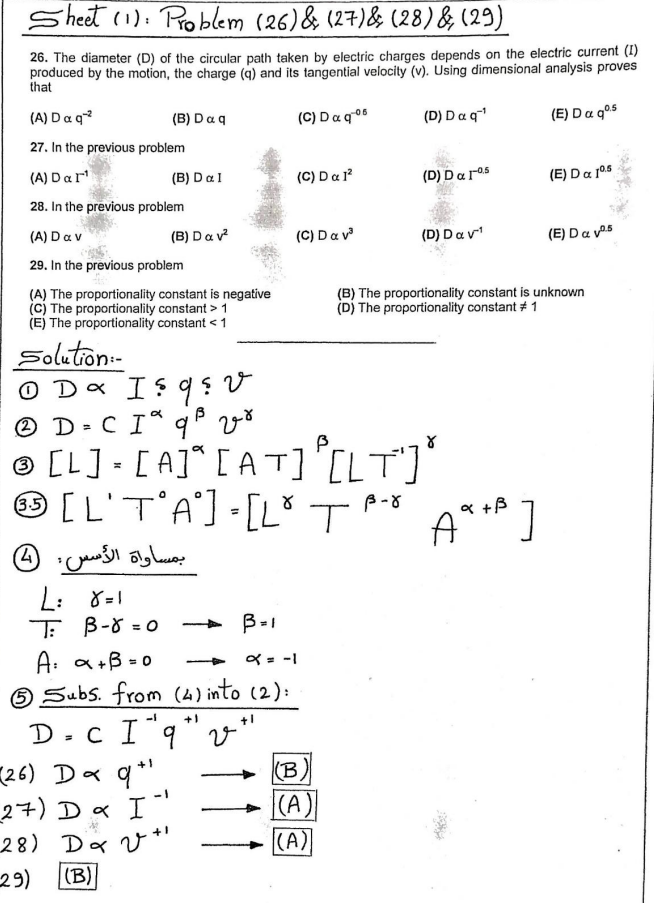 Sheet (1): Problem (26) & (27) & (28) & (29)
26. The diameter (D) of the circular path taken by electric charges depends on the electric current (I)
produced by the motion, the charge (q) and its tangential velocity (v). Using dimensional analysis proves
that
(A) D α q⁻² (B) D α q (C) D α q⁻⁰·⁵ (D) D α q⁻¹ (E) D α q⁰·⁵
27. In the previous problem
(A) D α I⁻¹ (B) D α I (C) D α I² (D) D α I⁻⁰·⁵ (E) D α I⁰·⁵
28. In the previous problem
(A) D α v (B) D α v² (C) D α v³ (D) D α v⁻¹ (E) D α v⁰·⁵
29. In the previous problem
(A) The proportionality constant is negative (B) The proportionality constant is unknown
(C) The proportionality constant > 1 (D) The proportionality constant ≠ 1
(E) The proportionality constant < 1
Solution:-
① D ∝ I ؟ q ؟ v
② D = C I^α q^β v^γ
③ [L] = [A]^α [AT]^β [LT⁻¹]^γ
(3.5) [L¹ T⁰ A⁰] = [L^γ T^(β-γ) A^(α+β)]
④ بمساواة الأسس:
L: γ = 1
T: β-γ = 0 → β = 1
A: α+β = 0 → α = -1
⑤ Subs. from (4) into (2):
D = C I⁻¹ q⁺¹ v⁺¹
(26) D ∝ q⁺¹ → (B)
27) D ∝ I⁻¹ → (A)
28) D ∝ v⁺¹ → (A)
29) (B)